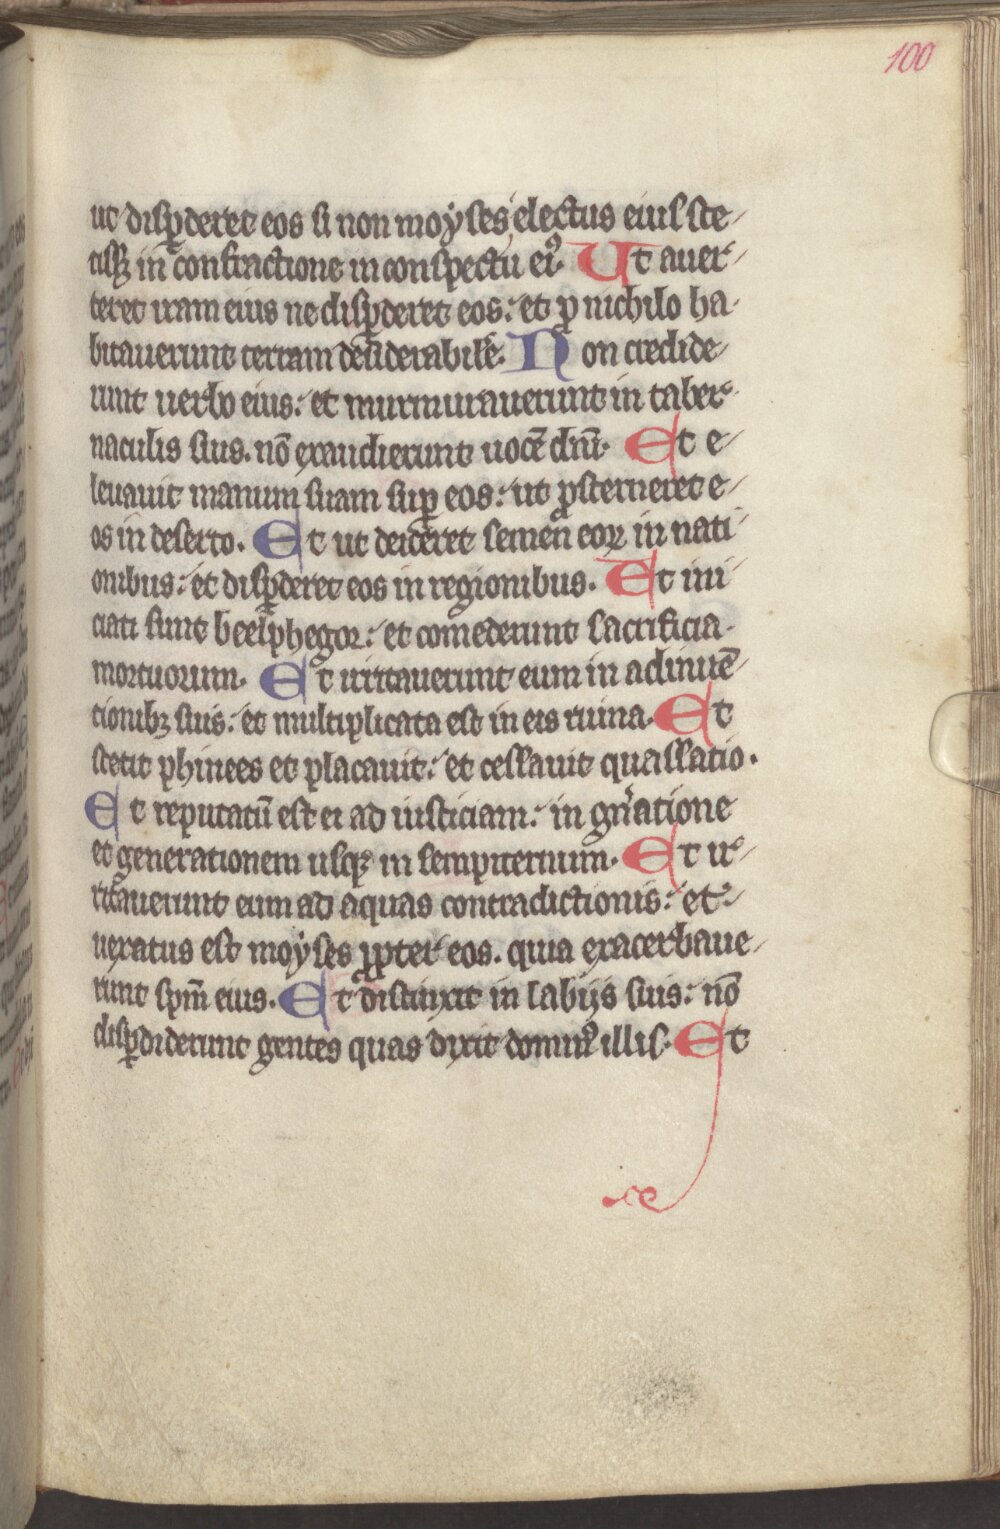 100
ut disꝑderet eos si non moyses electus eius ste-
tissꝫ in confractione in conspectu eiꝰ. Ut auer-
teret iram eius ne disꝑderet eos: et ꝓ nichilo ha-
bitauerunt terram desiderabilē. Non credide-
runt uerbo eius: et murmurauerunt in taber-
naculis suis. nō exaudierunt uocē dnī. Et e-
leuauit manum suam suꝑ eos: ut ꝓsterneret e-
os in deserto. Et ut deiceret semen eoꝝ in nati-
onibus: et disꝑderet eos in regionibus. Et ini-
ciati sunt beelphegor: et comederunt sacrificia
mortuorum. Et irritauerunt eum in adinuē-
tionibꝫ suis: et multiplicata est in eis ruina. Et
stetit phinees et placauit: et cessauit quassatio.
Et reputatū est ei ad iusticiam: in gn̄atione
et generationem usqꝫ in sempiternum. Et ir-
ritauerunt eum ad aquas contradictionis: et
uexatus est moyses ꝓpter eos. quia exacerbaue-
runt spm̄ eius. Et distinxit in labijs suis: nō
disꝑdiderunt gentes quas dixit dominꝰ illis. Et